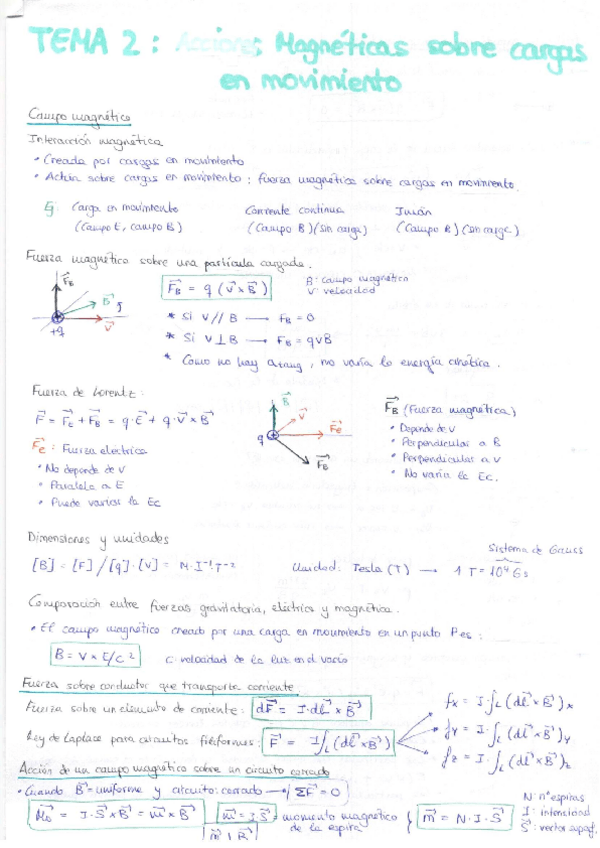 TEMA 2: Acciones Magnéticas sobre cargas
en movimiento
Campo magnético
Interacción magnética
• Creada por cargas en movimiento
• Actúa sobre cargas en movimiento: fuerza magnética sobre cargas en movimiento.
Ej: Carga en movimiento Corriente continua Imán
(Campo E, campo B) (Campo B) (sin carga) (Campo B) (sin carga)
Fuerza magnética sobre una partícula cargada.
F⃗B B⃗ V⃗ +q
F⃗B = q (v⃗ x B⃗)
B: campo magnético
V: velocidad
* Si V // B → FB = 0
* Si V ⊥ B → FB = qVB
* Como no hay atang, no varía la energía cinética.
Fuerza de Lorentz:
F⃗ = F⃗E + F⃗B = q·E⃗ + q·V⃗ x B⃗
F⃗E: Fuerza eléctrica
• No depende de v
• Paralela a E
• Puede variar la Ec
B⃗ V⃗ F⃗E q F⃗B
F⃗B (Fuerza magnética)
• Depende de v
• Perpendicular a B
• Perpendicular a v
• No varía la Ec.
Dimensiones y unidades
Sistema de Gauss
[B] = [F] / [q]·[V] = M·I⁻¹·T⁻² Unidad: Tesla (T) → 1 T = 10⁴ Gs
Comparación entre fuerzas gravitatoria, eléctrica y magnética.
• El campo magnético creado por una carga en movimiento en un punto P es:
B = V x E/c² c: velocidad de la luz en el vacío
Fuerza sobre conductor que transporta corriente
Fuerza sobre un elemento de corriente: dF⃗ = I·dl⃗ x B⃗
Ley de Laplace para circuitos filiformes: F⃗ = I∫L (dl⃗ x B⃗)
fx = I·∫L (dl⃗ x B⃗)x
fy = I·∫L (dl⃗ x B⃗)y
fz = I·∫L (dl⃗ x B⃗)z
Acción de un campo magnético sobre un circuito cerrado
• Cuando B⃗ = uniforme y circuito: cerrado → ΣF⃗ = 0
M⃗o = I·S⃗ x B⃗ = m⃗ x B⃗
m⃗ = I·S⃗ = momento magnético
de la espira
m⃗ = N·I·S⃗
N: nº espiras
I: intensidad
S⃗: vector superf.